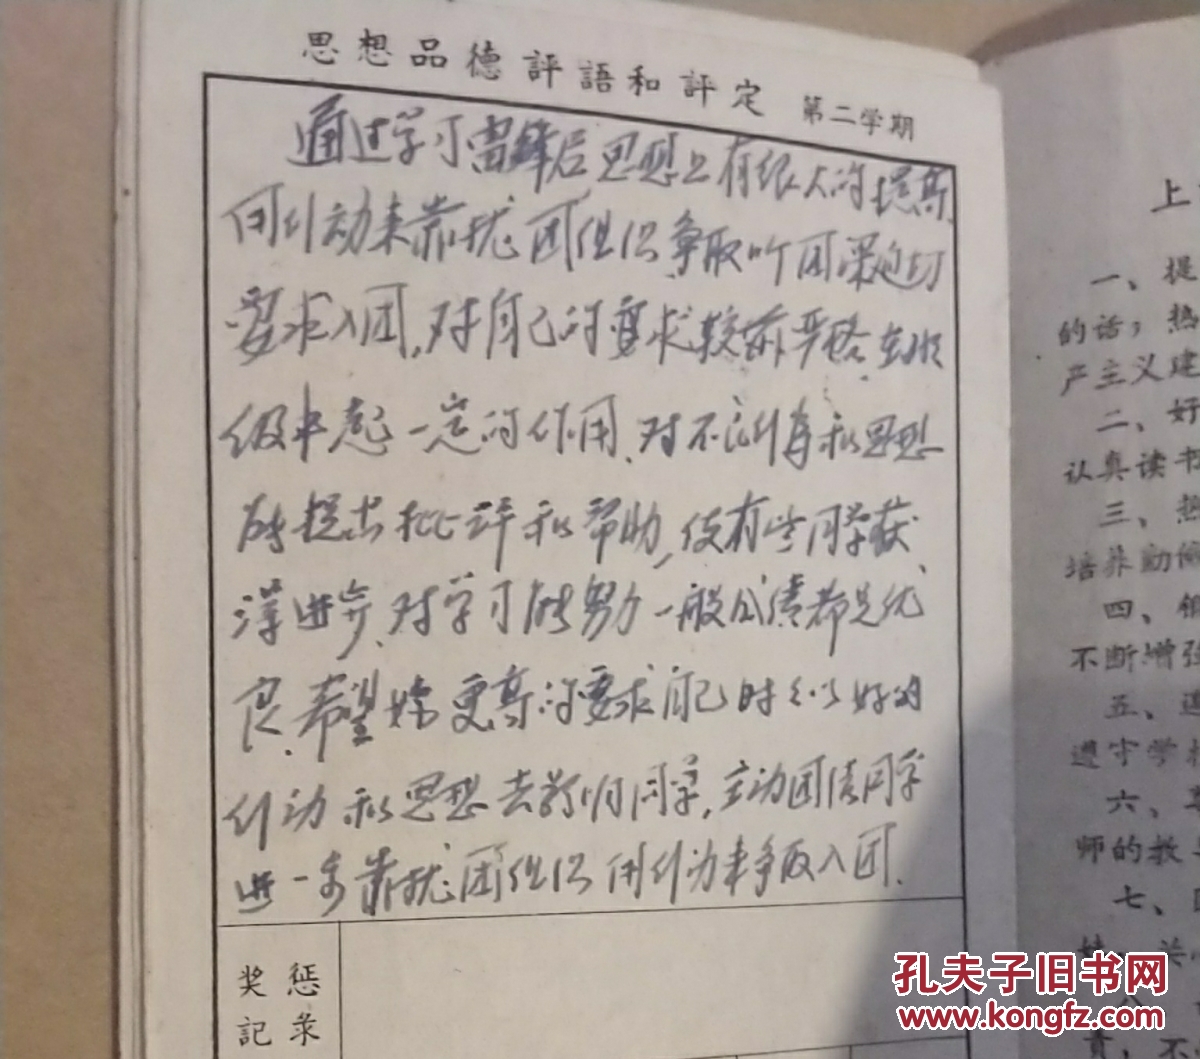 思想品德評語和評定 第二学期
通过学习雷鋒后思想上有很大的提高,
用行动来靠拢团组织争取听团课迫切
要求入团,对自己的要求較前严格,在班
级中起一定的作用,对不良行为和思想
能提出批評和帮助,使有些同学获
得进步,对学习能努力一般成绩都是优
良,希望能更高的要求自己时之以好的
行动和思想去影响同学,主动团结同学
进一步靠拢团组织用行动来争取入团.
奖惩
記录
上
一、提
的话;热
产主义建
二、好
认真读书
三、热
培养勤俭
四、
不断增强
五、
遵守学校
六、
师的教
七、
不
孔夫子旧书网
www.kongfz.com